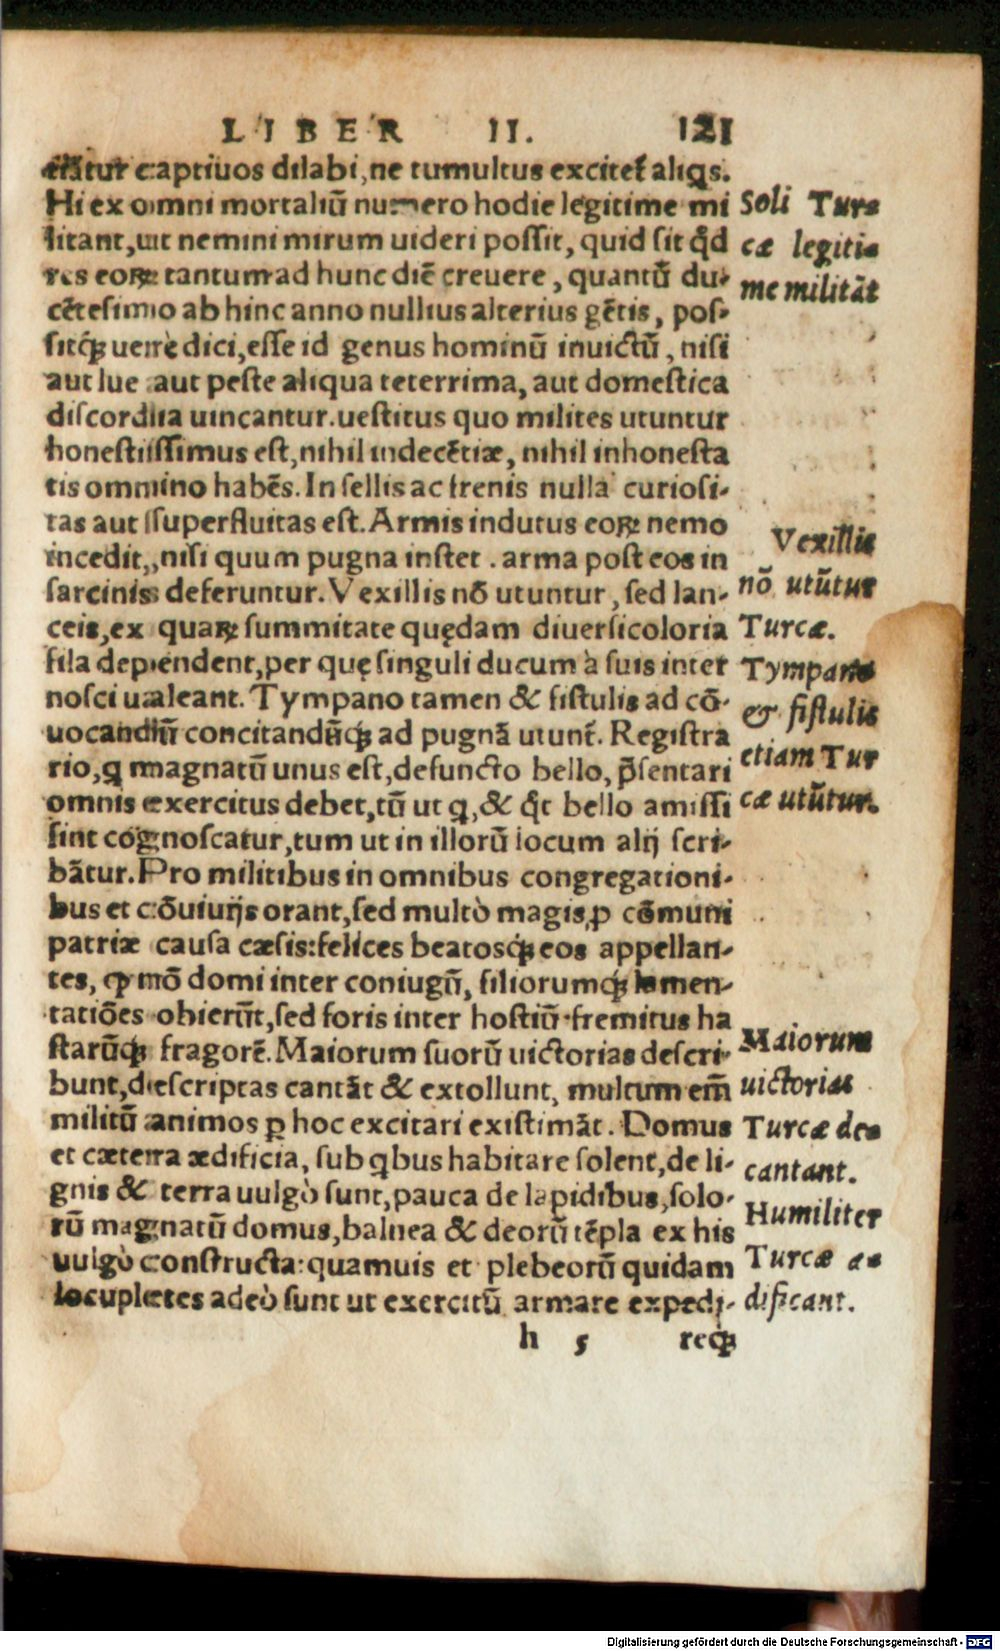 LIBER II. 121
captiuos dilabi, ne tumultus excitet̃ aliqs.
Hi ex omni mortaliũ numero hodie legitime mi
litant, ut nemini mirum uideri possit, quid sit qđ
res eoꝝ tantum ad hunc diẽ creuere, quantũ du-
cẽtesimo ab hinc anno nullius alterius gẽtis, pos-
sitq́ꝫ uerè dici, esse id genus hominũ inuictũ, nisi
aut lue aut peste aliqua teterrima, aut domestica
discordia uincantur. uestitus quo milites utuntur
honestissimus est, nihil indecẽtiæ, nihil inhonesta
tis omnino habẽs. In sellis ac frenis nulla curiosi-
tas aut superfluitas est. Armis indutus eoꝝ nemo
incedit, nisi quum pugna instet. arma post eos in
sarcinis deferuntur. Vexillis nõ utuntur, sed lan-
ceis, ex quaꝝ summitate quędam diuersicoloria
fila dependent, per quę singuli ducum à suis inter
nosci ualeant. Tympano tamen & fistulis ad cõ-
uocandũ concitandũq́ꝫ ad pugnã utunt̃. Registra
rio, ꝗ magnatũ unus est, defuncto bello, p̃sentari
omnis exercitus debet, tũ ut ꝗ, & q̃t bello amissi
sint cognoscatur, tum ut in illorũ locum alij scri-
bãtur. Pro militibus in omnibus congregationi-
bus et cõuiuijs orant, sed multò magis ꝓ cõmuni
patriæ causa cæsis: felices beatosq́ꝫ eos appellan-
tes, ꝙ nõ domi inter coniugũ, filiorumq́ꝫ lamen-
tatiões obierũt, sed foris inter hostiũ fremitus ha
starũq́ꝫ fragorẽ. Maiorum suorũ uictorias descri-
bunt, descriptas cantãt & extollunt, multum em̃
militũ animos ꝑ hoc excitari existimãt. Domus
et cætera ædificia, sub ꝗbus habitare solent, de li-
gnis & terra uulgò sunt, pauca de lapidibus, solo-
rũ magnatũ domus, balnea & deorũ tẽpla ex his
uulgò constructa: quamuis et plebeorũ quidam
locupletes adeò sunt ut exercitũ armare expedi-
h 5 req́ꝫ
Soli Tur-
cæ legiti-
me militãt
Vexillis
nõ utũtur
Turcæ.
Tympanis
& fistulis
etiam Tur
cæ utũtur.
Maiorum
uictorias
Turcæ de-
cantant.
Humiliter
Turcæ æ-
dificant.
Digitalisierung gefördert durch die Deutsche Forschungsgemeinschaft - DFG